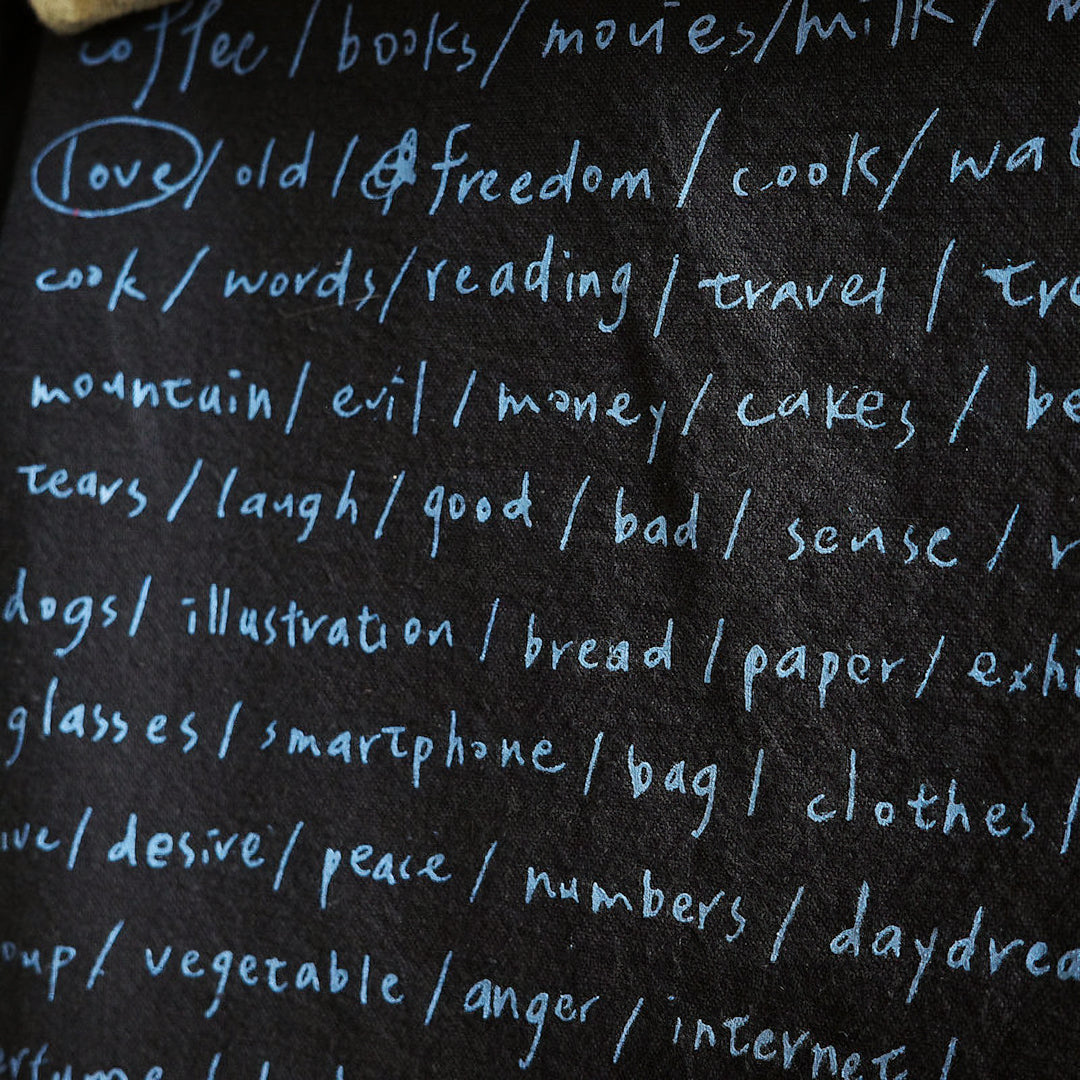 coffee / books / movies / milk /
love / old / freedom / cook /
cook / words / reading / travel /
mountain / evil / money / cakes /
tears / laugh / good / bad / sense /
dogs / illustration / bread / paper /
glasses / smartphone / bag / clothes /
/ desire / peace / numbers /
/ vegetable / anger / internet /